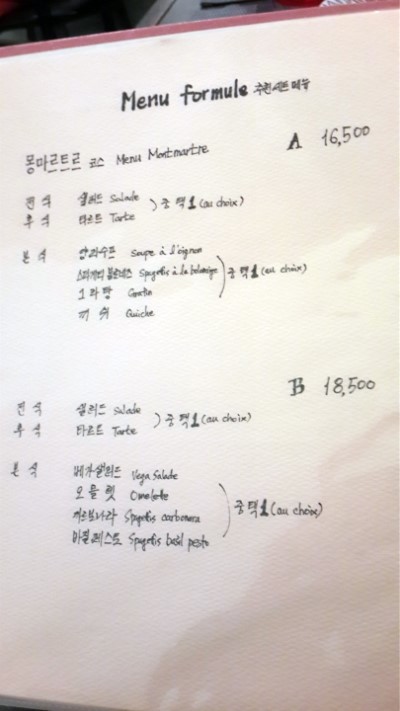 Menu formule 추천세트메뉴
A 16,500
몽마르트르 코스 Menu Montmartre
전식 샐러드 Salade
후식 타르트 Tarte
) 중 택1 (au choix)
본식 양파수프 Soupe à l'oignon
스파게티 볼로네즈 Spagetis à la bolonaise
그라탕 Gratin
끼쉬 Quiche
) 중 택1 (au choix)
B 18,500
전식 샐러드 Salade
후식 타르트 Tarte
) 중 택1 (au choix)
본식 베가샐러드 Vega Salade
오믈렛 Omelete
까르보나라 Spagetis carbonara
바질페스토 Spagetis basil pesto
) 중 택1 (au choix)